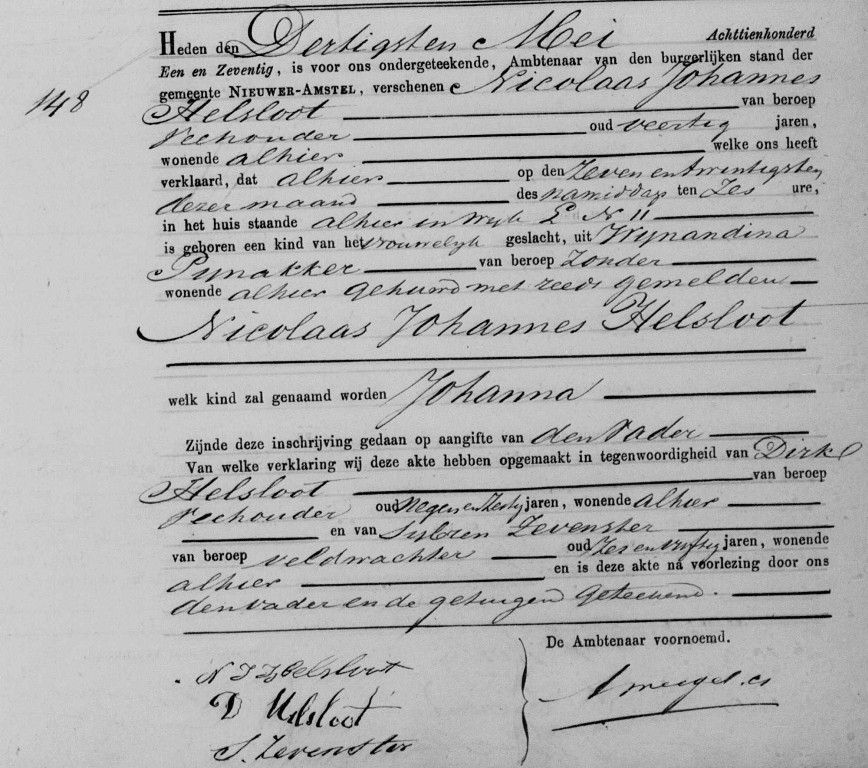 Heden den Dertigsten Mei Achttienhonderd
Een en Zeventig, is voor ons ondergeteekende, Ambtenaar van den burgerlijken stand der
148
gemeente NIEUWER-AMSTEL, verschenen Nicolaas Johannes
Helsloot van beroep
Veehouder oud veertig jaren,
wonende alhier welke ons heeft
verklaard, dat alhier op den Zeven en twintigsten
dezer maand des namiddag ten Zes ure,
in het huis staande alhier in Wijk E N 11
is geboren een kind van het vrouwelijk geslacht, uit Wijnandina
Pijnakker van beroep Zonder
wonende alhier gehuwd met reeds gemelden
Nicolaas Johannes Helsloot
welk kind zal genaamd worden Johanna
Zijnde deze inschrijving gedaan op aangifte van den Vader
Van welke verklaring wij deze akte hebben opgemaakt in tegenwoordigheid van Dirk
Helsloot van beroep
Veehouder oud Negen en Zestig jaren, wonende alhier
en van Sybren Zevenster
van beroep veldwachter oud Zes en vyftig jaren, wonende
alhier en is deze akte na voorlezing door ons
den vader en de getuigen geteekend.
De Ambtenaar voornoemd.
N J Helsloot
D Helsloot
S. Zevenster